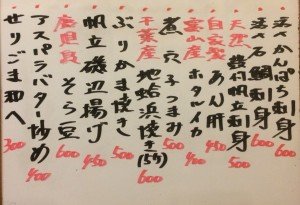 活〆かんぱち刺身 600
活〆石鯛刺身 600
天然 殻付帆立刺身 500
自家製 あん肝 450
富山産 ホタルイカ 600
煮穴子つまみ 500
千葉産 地蛤浜焼き(5ヶ) 600
ぶりかま焼き 500
帆立磯辺揚げ 450
鹿児島 そら豆 600
アスパラバター炒め 400
せりごま和へ 300